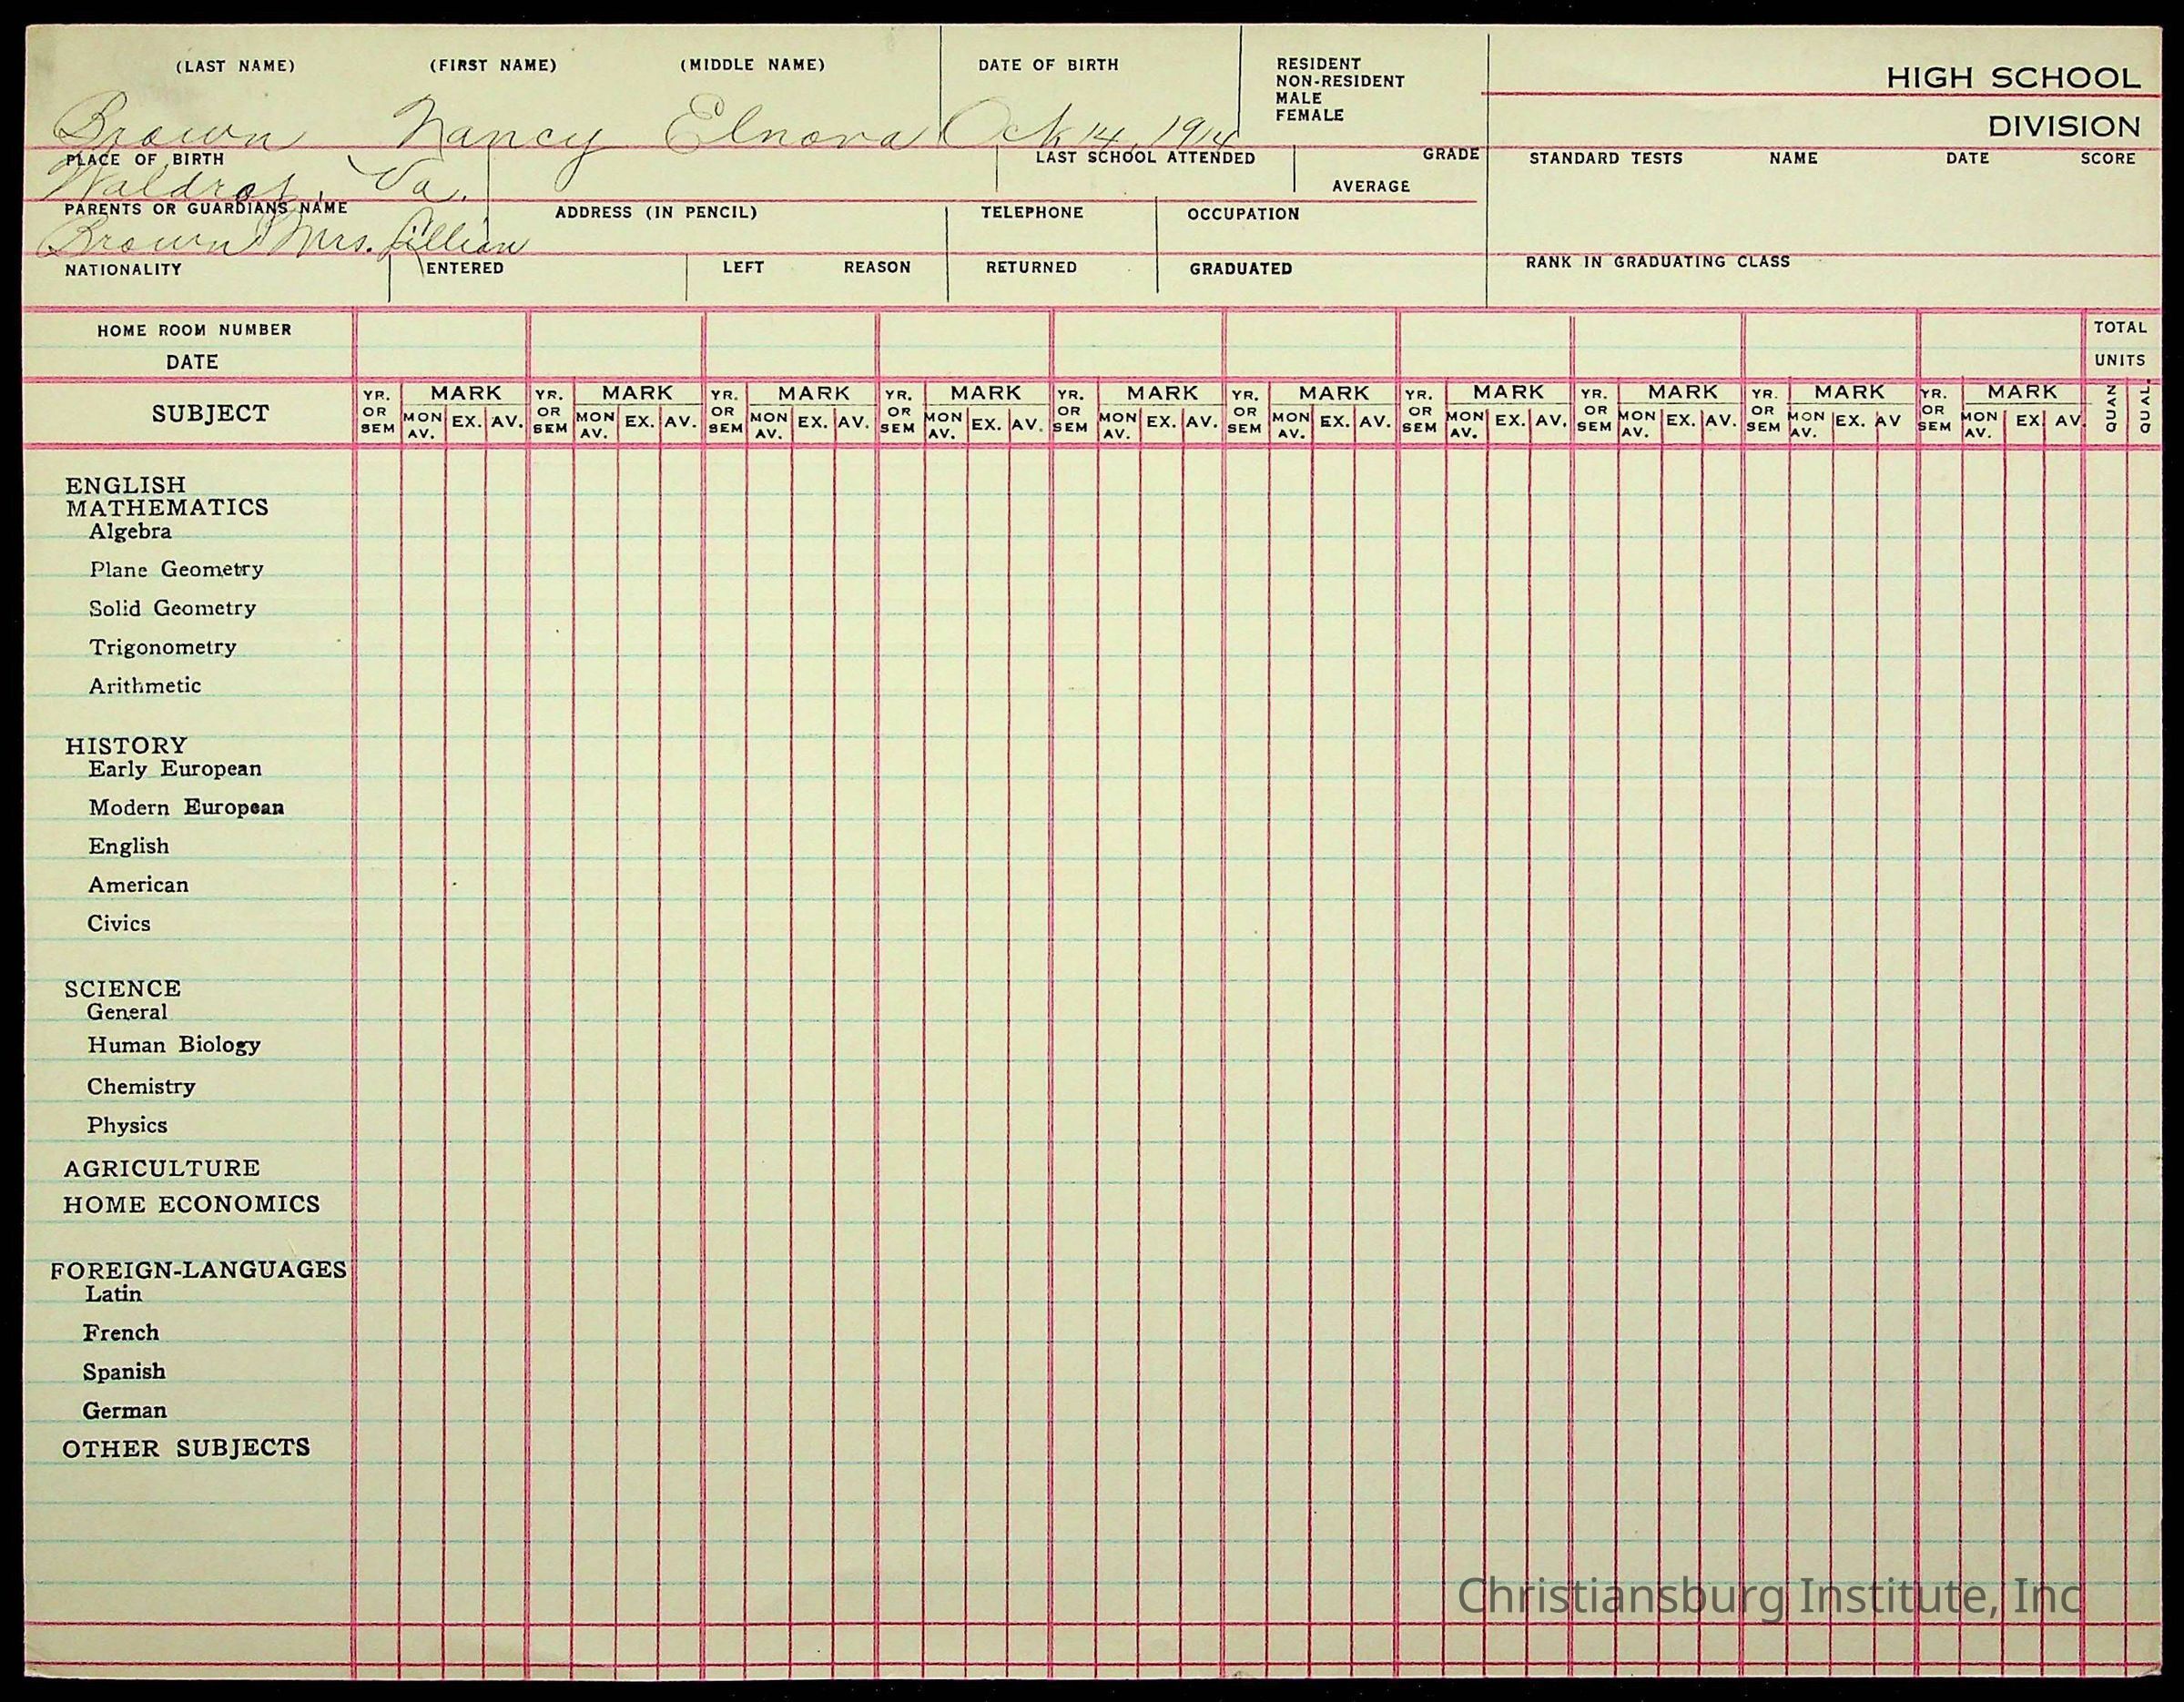 (LAST NAME) (FIRST NAME) (MIDDLE NAME) DATE OF BIRTH
RESIDENT
NON-RESIDENT
MALE
FEMALE
HIGH SCHOOL
DIVISION
Brown Nancy Elnora Oct 14, 1914
PLACE OF BIRTH LAST SCHOOL ATTENDED GRADE
AVERAGE
STANDARD TESTS NAME DATE SCORE
Waldrop, Va.
PARENTS OR GUARDIANS NAME ADDRESS (IN PENCIL) TELEPHONE OCCUPATION
Brown Mrs. Lillian
NATIONALITY ENTERED LEFT REASON RETURNED GRADUATED RANK IN GRADUATING CLASS
HOME ROOM NUMBER TOTAL
DATE UNITS
SUBJECT
YR. OR SEM MARK MON AV. EX. AV.
YR. OR SEM MARK MON AV. EX. AV.
YR. OR SEM MARK MON AV. EX. AV.
YR. OR SEM MARK MON AV. EX. AV.
YR. OR SEM MARK MON AV. EX. AV.
YR. OR SEM MARK MON AV. EX. AV.
YR. OR SEM MARK MON AV. EX. AV.
YR. OR SEM MARK MON AV. EX. AV.
YR. OR SEM MARK MON AV. EX. AV
YR. OR SEM MARK MON AV. EX AV.
QUAN QUAL.
ENGLISH
MATHEMATICS
Algebra
Plane Geometry
Solid Geometry
Trigonometry
Arithmetic
HISTORY
Early European
Modern European
English
American
Civics
SCIENCE
General
Human Biology
Chemistry
Physics
AGRICULTURE
HOME ECONOMICS
FOREIGN-LANGUAGES
Latin
French
Spanish
German
OTHER SUBJECTS
Christiansburg Institute, Inc